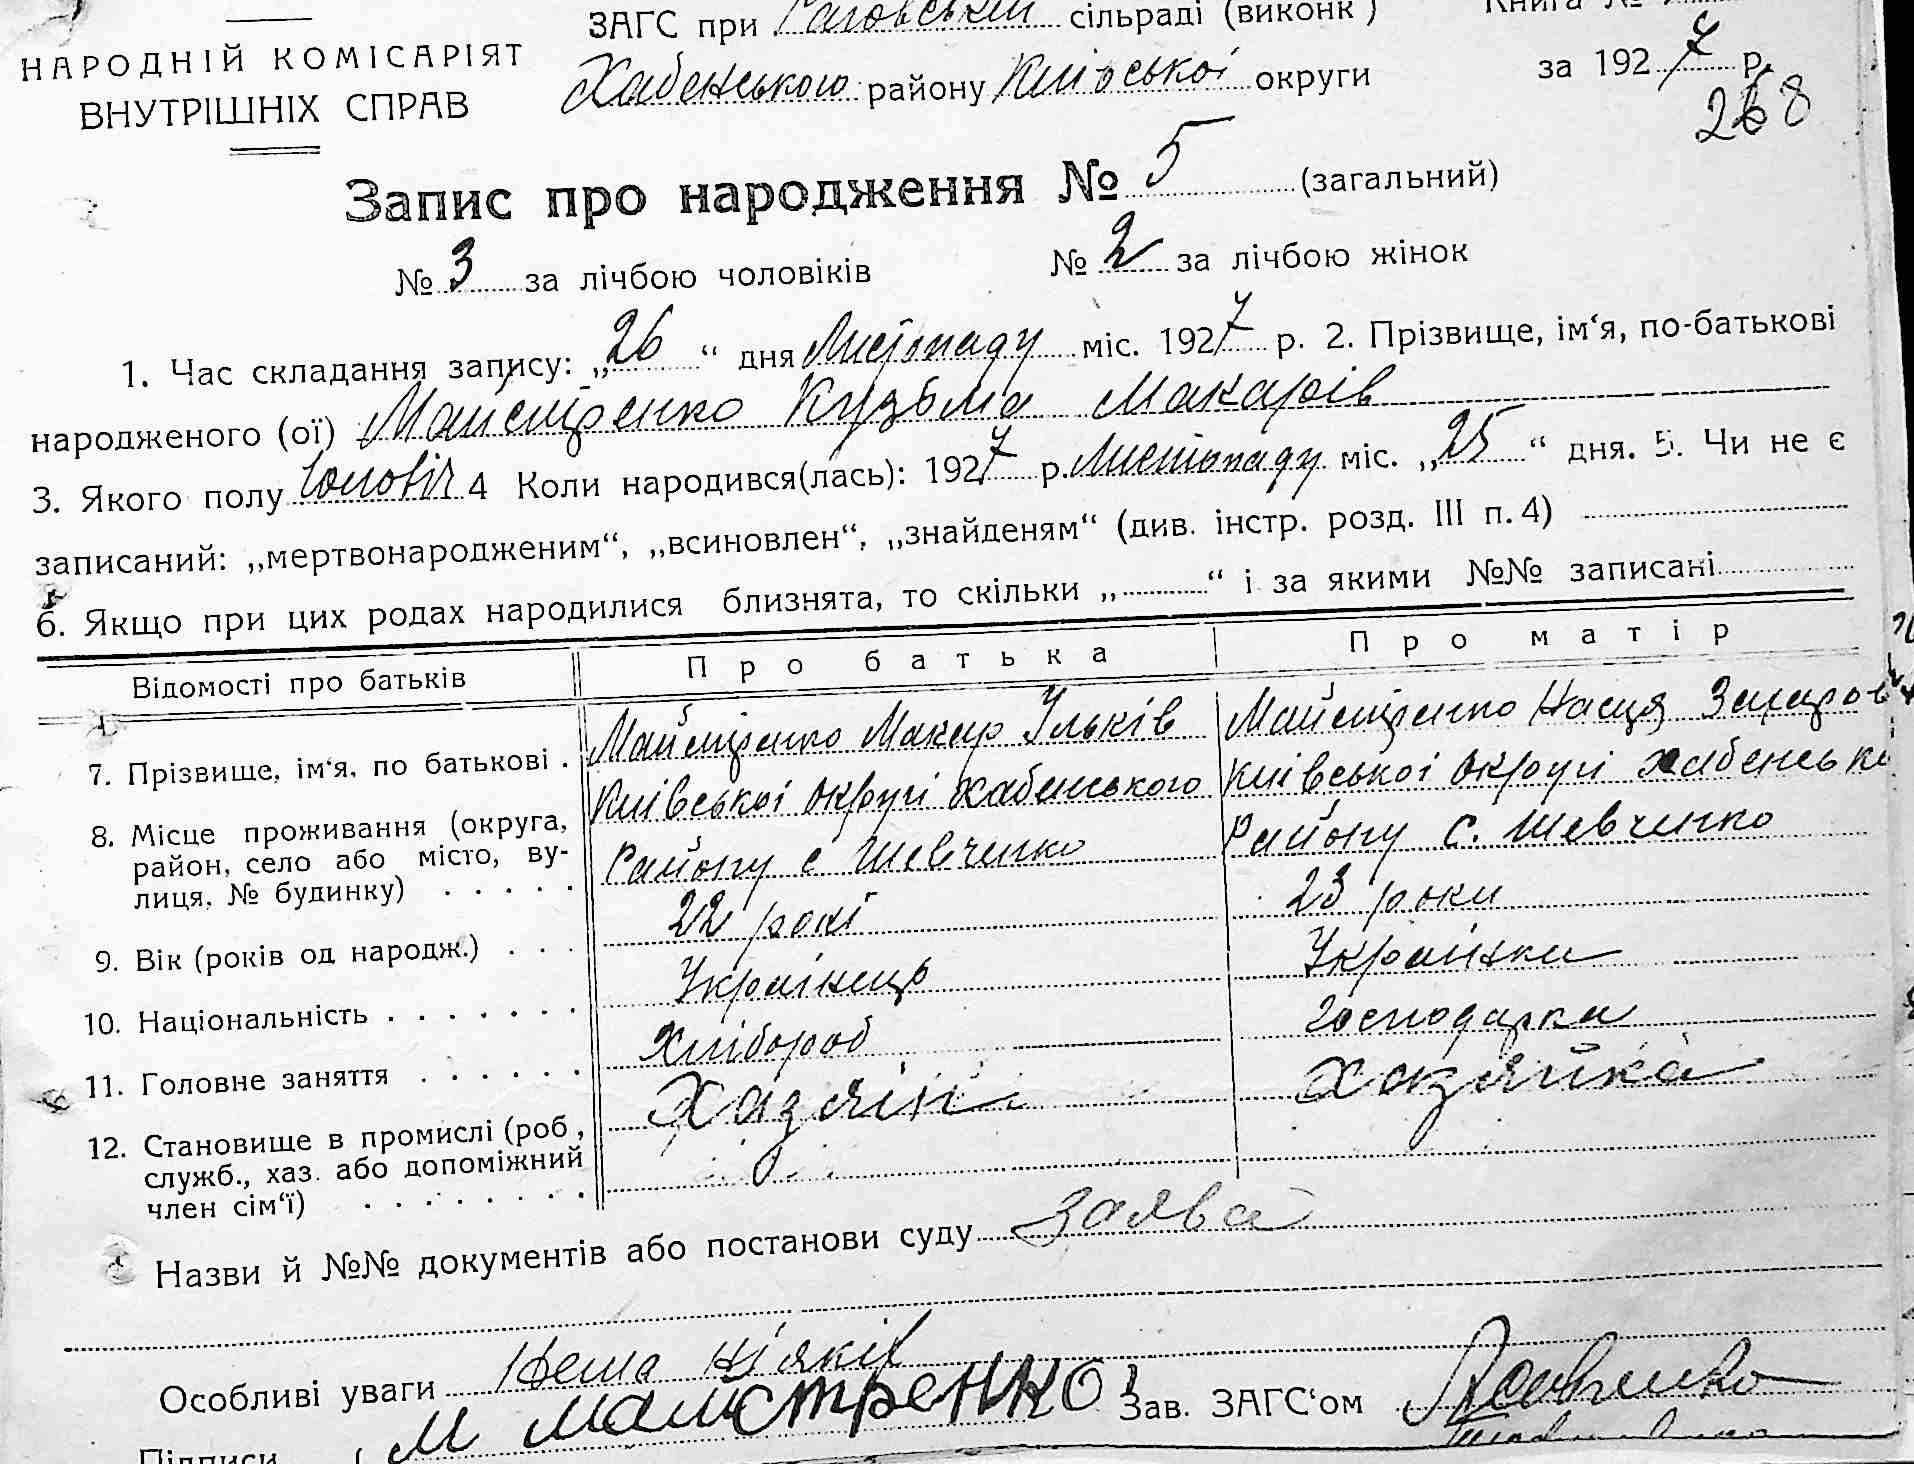 ЗАГС при Раговській сільраді (виконк )
Книга №
НАРОДНІЙ КОМІСАРІЯТ
ВНУТРІШНІХ СПРАВ
Хабенського району Київської округи
за 1927 р.
268
Запис про народження № 5 (загальний)
№ 3 за лічбою чоловіків № 2 за лічбою жінок
1. Час складання запису: „26“ дня Листопаду міс. 1927 р. 2. Прізвище, ім‘я, по-батькові
народженого (ої) Майстренко Кузьма Макарів
3. Якого полу чоловіч 4 Коли народився(лась): 1927 р. Листопаду міс. „25“ дня. 5. Чи не є
записаний: „мертвонародженим“, „всиновлен“, „знайденям“ (див. інстр. розд. III п. 4)
6. Якщо при цих родах народилися близнята, то скільки „ “ і за якими №№ записані
Відомості про батьків Про батька Про матір
7. Прізвище, ім‘я, по батькові . Майстренко Макар Ільків Майстренко Настя Захаров
8. Місце проживання (округа, Київської округі Хабенського Київської округі Хабенсько
район, село або місто, ву- Району с Шевченко Району с. Шевченко
лиця, № будинку)
9. Вік (років од народж.) 22 рокі 23 роки
10. Національність Українець Українка
11. Головне заняття Хлібороб господарка
12. Становище в промислі (роб, Хазяїн Хазяйка
служб., хаз. або допоміжний
член сім‘ї)
Назви й №№ документів або постанови суду заява
Особливі уваги Нема ніяків
Підписи М майстренко Зав. ЗАГС‘ом